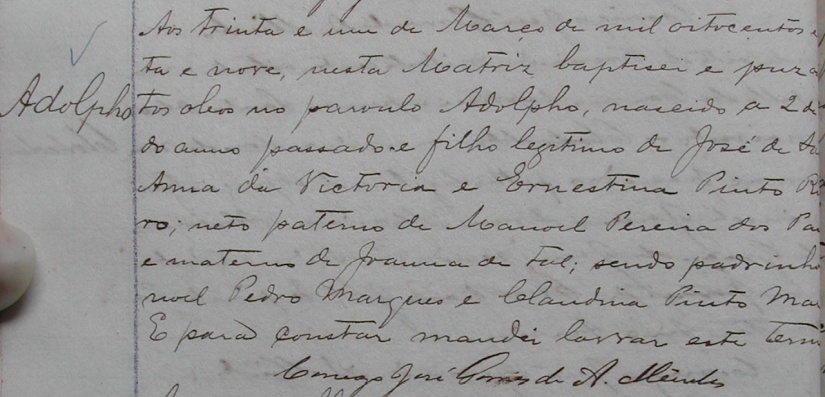 Aos trinta e um de Março de mil oitocentos e
ta e nove, nesta Matriz baptisei e puz os
Adolpho
tos oleos no parvulo Adolpho, nascido a 2 de
do anno passado e filho legitimo de José de
Anna da Victoria e Ernestina Pinto
ro; neto paterno de Manoel Pereira dos
e materno de Joanna de Tal; sendo padrinho
noel Pedro Marques e Claudina Pinto
E para constar mandei lavrar este
Conego José Gomes de A. Mendes